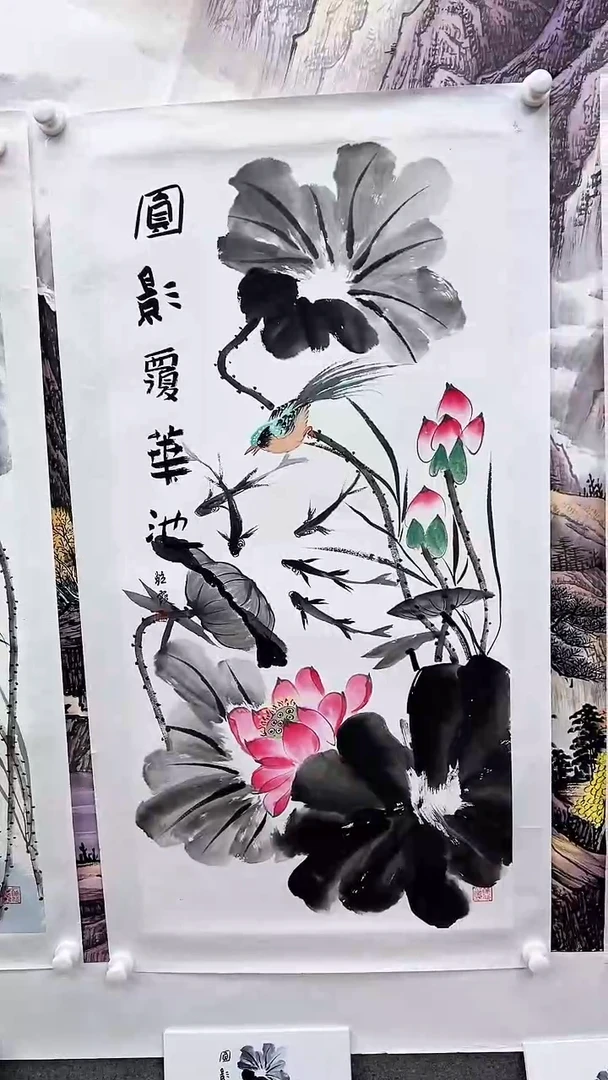 圓影覆華池
圓